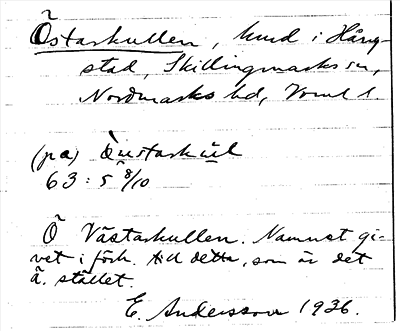 Östaskullen, kund i Häng-
stad, Skillingmarks sn,
Nordmarks hd, Vrml l.
(pa)
63 : 5 8/10
Ö Västaskullen. Namnet gi-
vet i förh. till detta, som är det
ä. stället.
E. Andersson 1936.